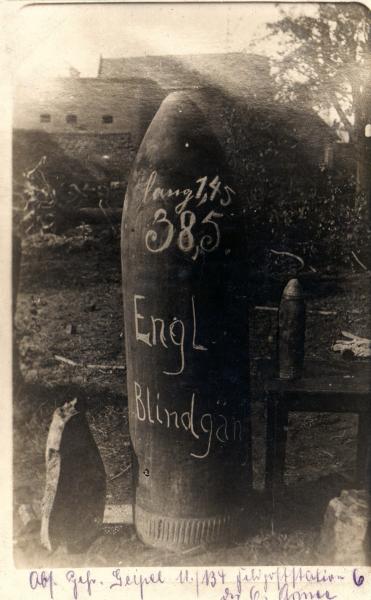 lang 1,45
38,5.
Engl
Blindgän
Abs. Gefr. Geipel 11./134 Feldpoststation 6
der 6. Armee